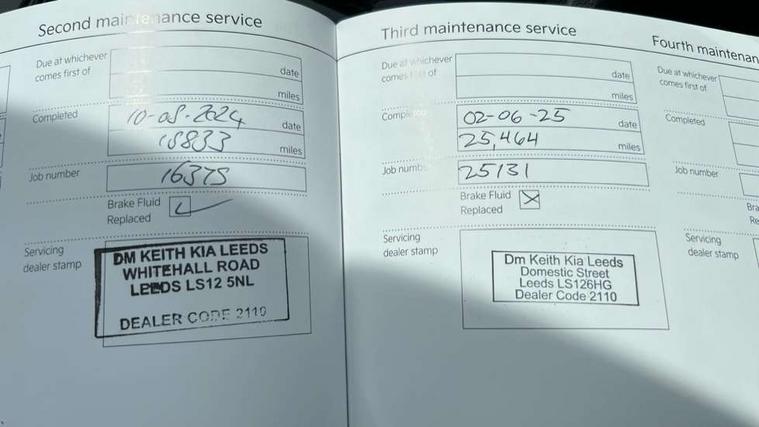 Second maintenance service
Due at whichever
comes first of
date
miles
Completed
10-08-2024
date
18833
miles
Job number
16375
Brake Fluid
Replaced
Servicing
dealer stamp
DM KEITH KIA LEEDS
WHITEHALL ROAD
LEEDS LS12 5NL
DEALER CODE 2110
Third maintenance service
Due at whichever
comes first of
date
miles
02-06-25
date
25,464
miles
Job number
25131
Brake Fluid
Replaced
Servicing
dealer stamp
Dm Keith Kia Leeds
Domestic Street
Leeds LS126HG
Dealer Code 2110
Fourth maintenan
Due at whichever
comes first of
Completed
Job number
Bra
Re
Servicing
dealer stamp